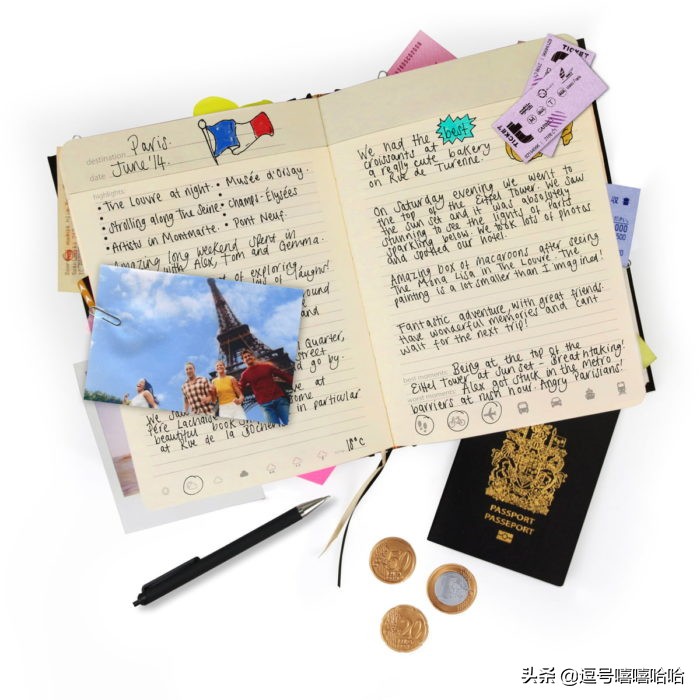 destination Paris.
date June '14.
highlights
• The Louvre at night. • Musée d'Orsay.
• Strolling along the Seine • Champs-Élysées
• Artists in Montmartre. • Pont Neuf.
Amazing long weekend spent in
with Alex, Tom and Gemma.
of exploring,
laughs!
around
and
Quarter,
street
go by.
at
some
in particular
Père Lachaise
beautiful
at Rue de la
18°C
We had the best
croissants at
a really cute bakery
on Rue de Turenne.
On Saturday evening we went to
the top of the Eiffel Tower. We saw
the sun set and it was absolutely
stunning to see the lights of Paris
sparkling below. We took lots of photos
and spotted our hotel.
Amazing box of macaroons after seeing
The Mona Lisa in The Louvre. The
painting is a lot smaller than I imagined!
Fantastic adventure, with great friends.
Have wonderful memories and can't
wait for the next trip!
best moments: Being at the top of the
Eiffel Tower at sun set - breathtaking!
worst moments: Alex got stuck in the metro
barriers at rush hour. Angry Parisians!
TICKET
TICKET
PASSPORT
PASSEPORT
50
20
头条 @逗号嘻嘻哈哈